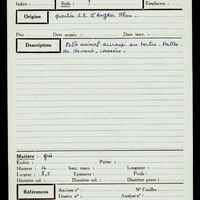 Indice : Salle : ? Emplacem. :
Origine quartier S.E. d'Angkor Thom.
Prix : Date acquis. : Date inscr. :
Description Petit animal accroupi au bestia. Pattes
de devant, cassées.
Matière : grès
Enduit : Patine :
Hauteur : 14 haut. tenon. : Longueur :
Largeur : 8,5 Epaisseur : Poids :
Diamètre ext. : Diamètre col. :
Références Anciens nos : N° Feuilles :
Dossier n° : Analyse n° :